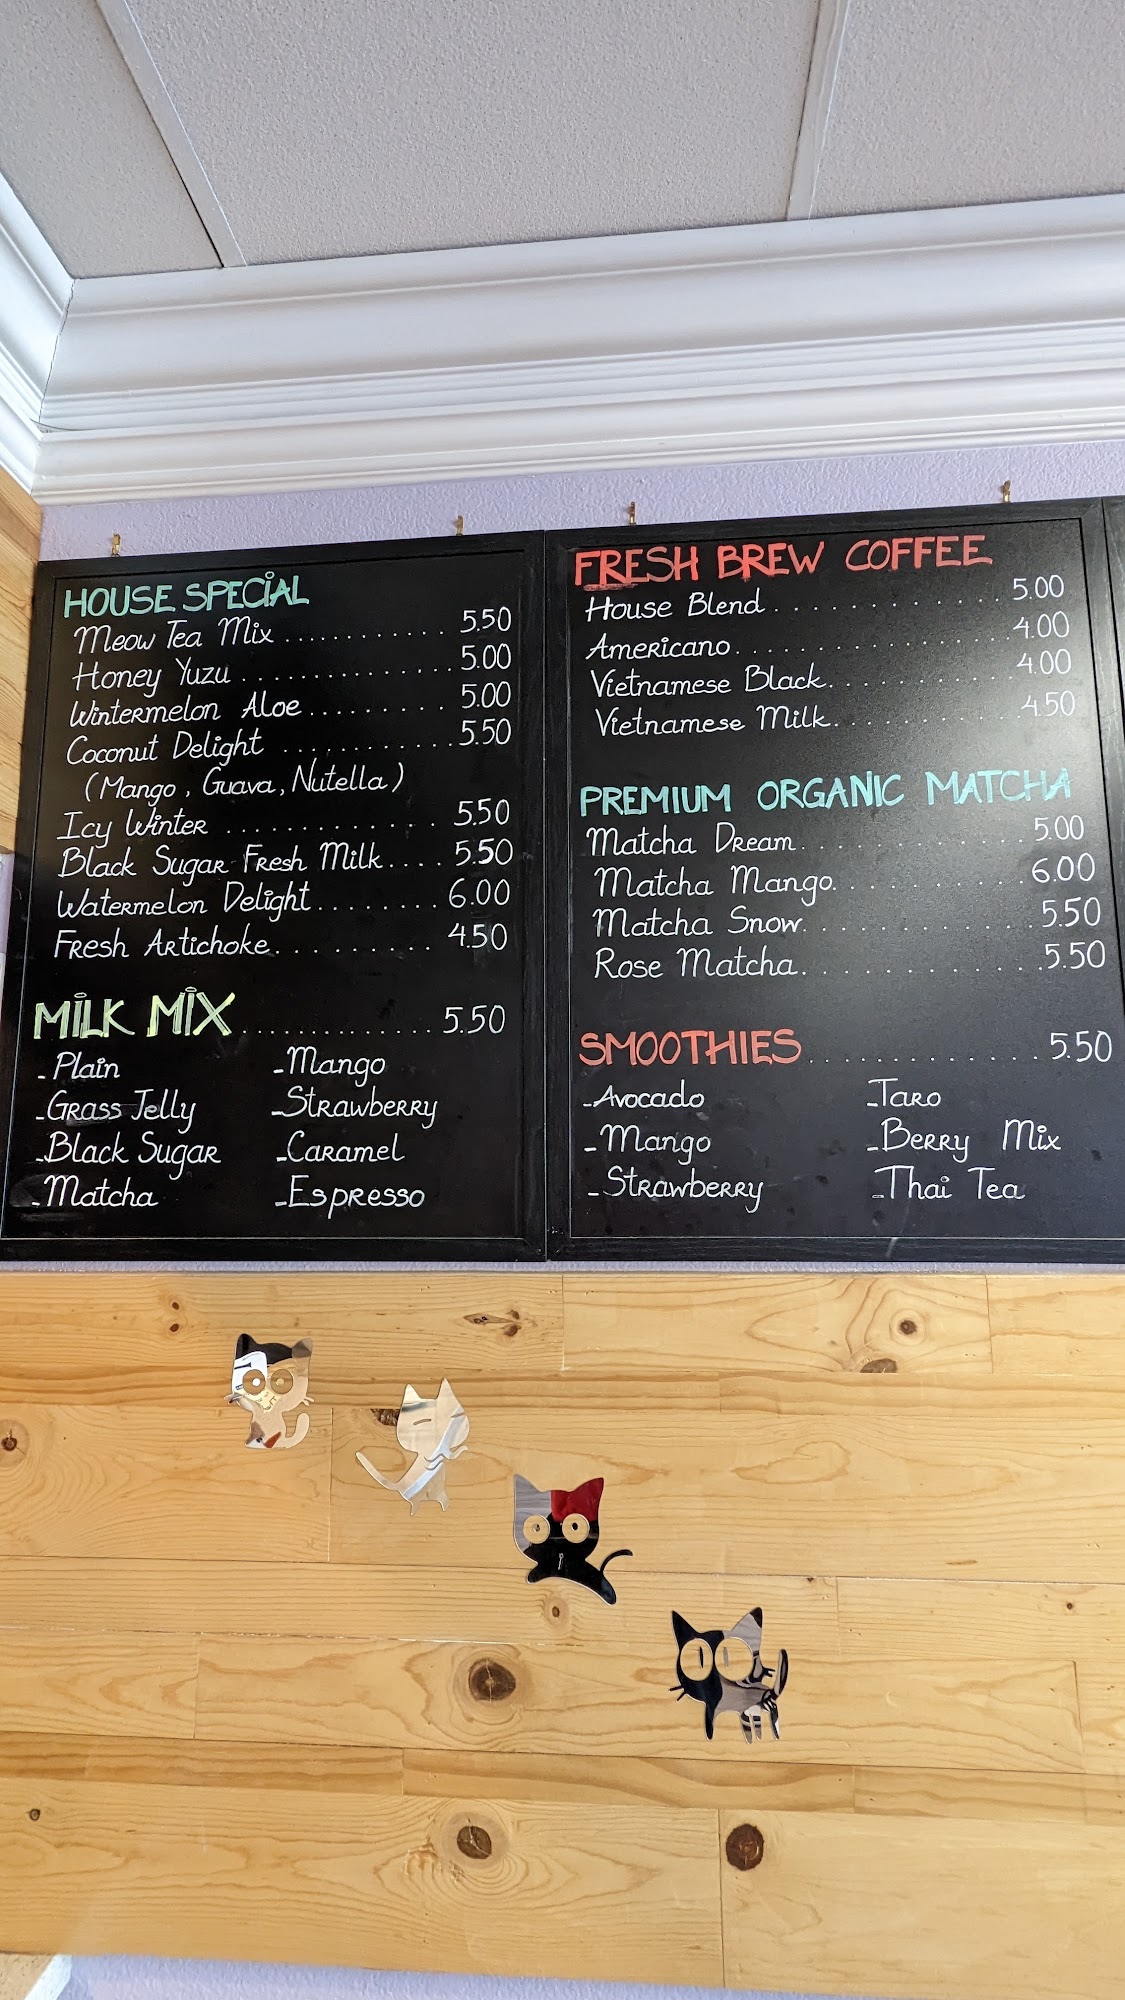 HOUSE SPECIAL
Meow Tea Mix ............ 5.50
Honey Yuzu ............ 5.00
Wintermelon Aloe ......... 5.00
Coconut Delight ........... 5.50
(Mango, Guava, Nutella)
Icy Winter ............. 5.50
Black Sugar Fresh Milk .... 5.50
Watermelon Delight ........ 6.00
Fresh Artichoke .......... 4.50
MILK MIX ............ 5.50
- Plain - Mango
- Grass Jelly - Strawberry
- Black Sugar - Caramel
- Matcha - Espresso
FRESH BREW COFFEE
House Blend ............ 5.00
Americano ............. 4.00
Vietnamese Black ......... 4.00
Vietnamese Milk ......... 4.50
PREMIUM ORGANIC MATCHA
Matcha Dream .......... 5.00
Matcha Mango .......... 6.00
Matcha Snow ............ 5.50
Rose Matcha ............ 5.50
SMOOTHIES ............ 5.50
- Avocado - Taro
- Mango - Berry Mix
- Strawberry - Thai Tea